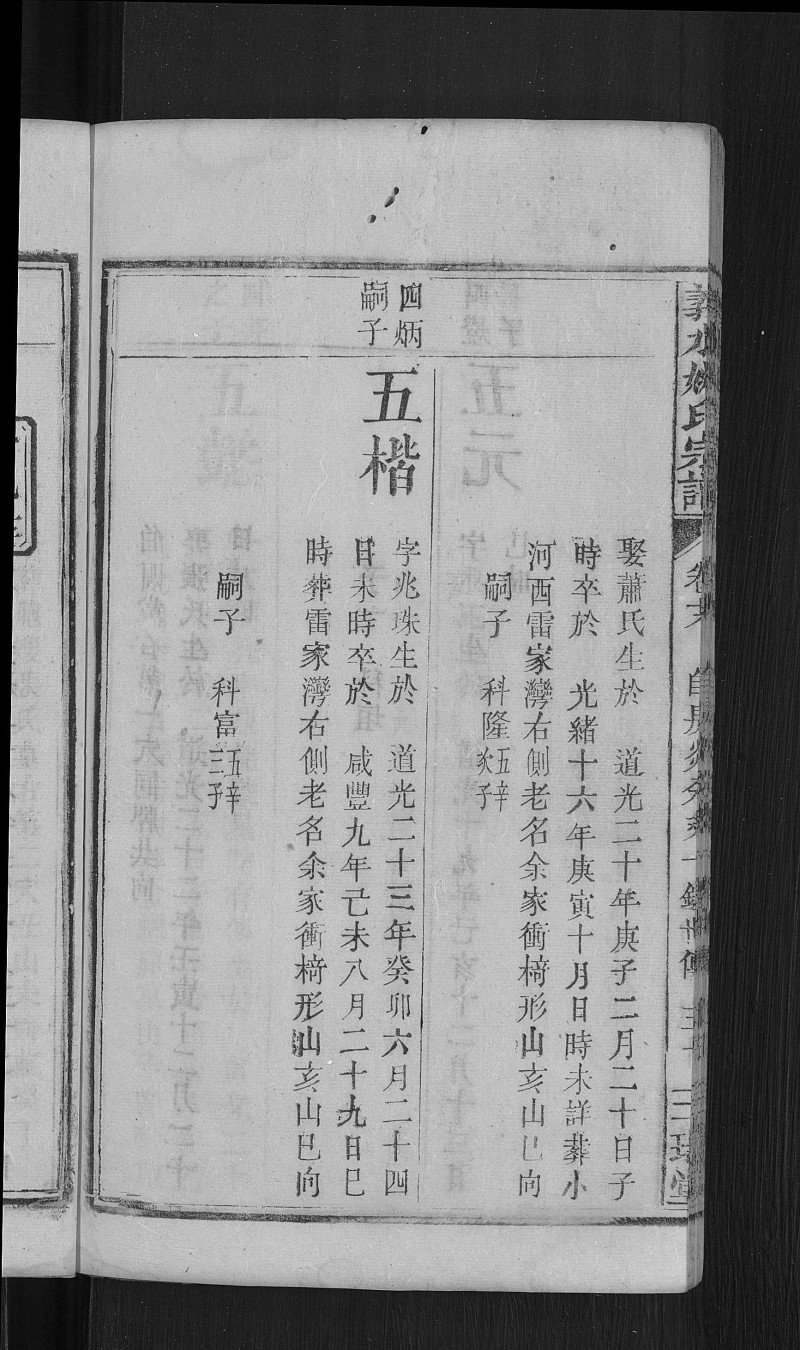 娶蕭氏生於 道光二十年庚子二月二十日子
時卒於 光緒十六年庚寅十月日時未詳葬小
河西雷家灣右側老名余家衝椅形山亥山巳向
嗣子 科隆五辛次子
四炳嗣子
五楷
字兆珠生於 道光二十三年癸卯六月二十四
日未時卒於 咸豐九年己未八月二十九日巳
時葬雷家灣右側老名余家衝椅形山亥山巳向
嗣子 科富五辛三子
氏宗譜
卷